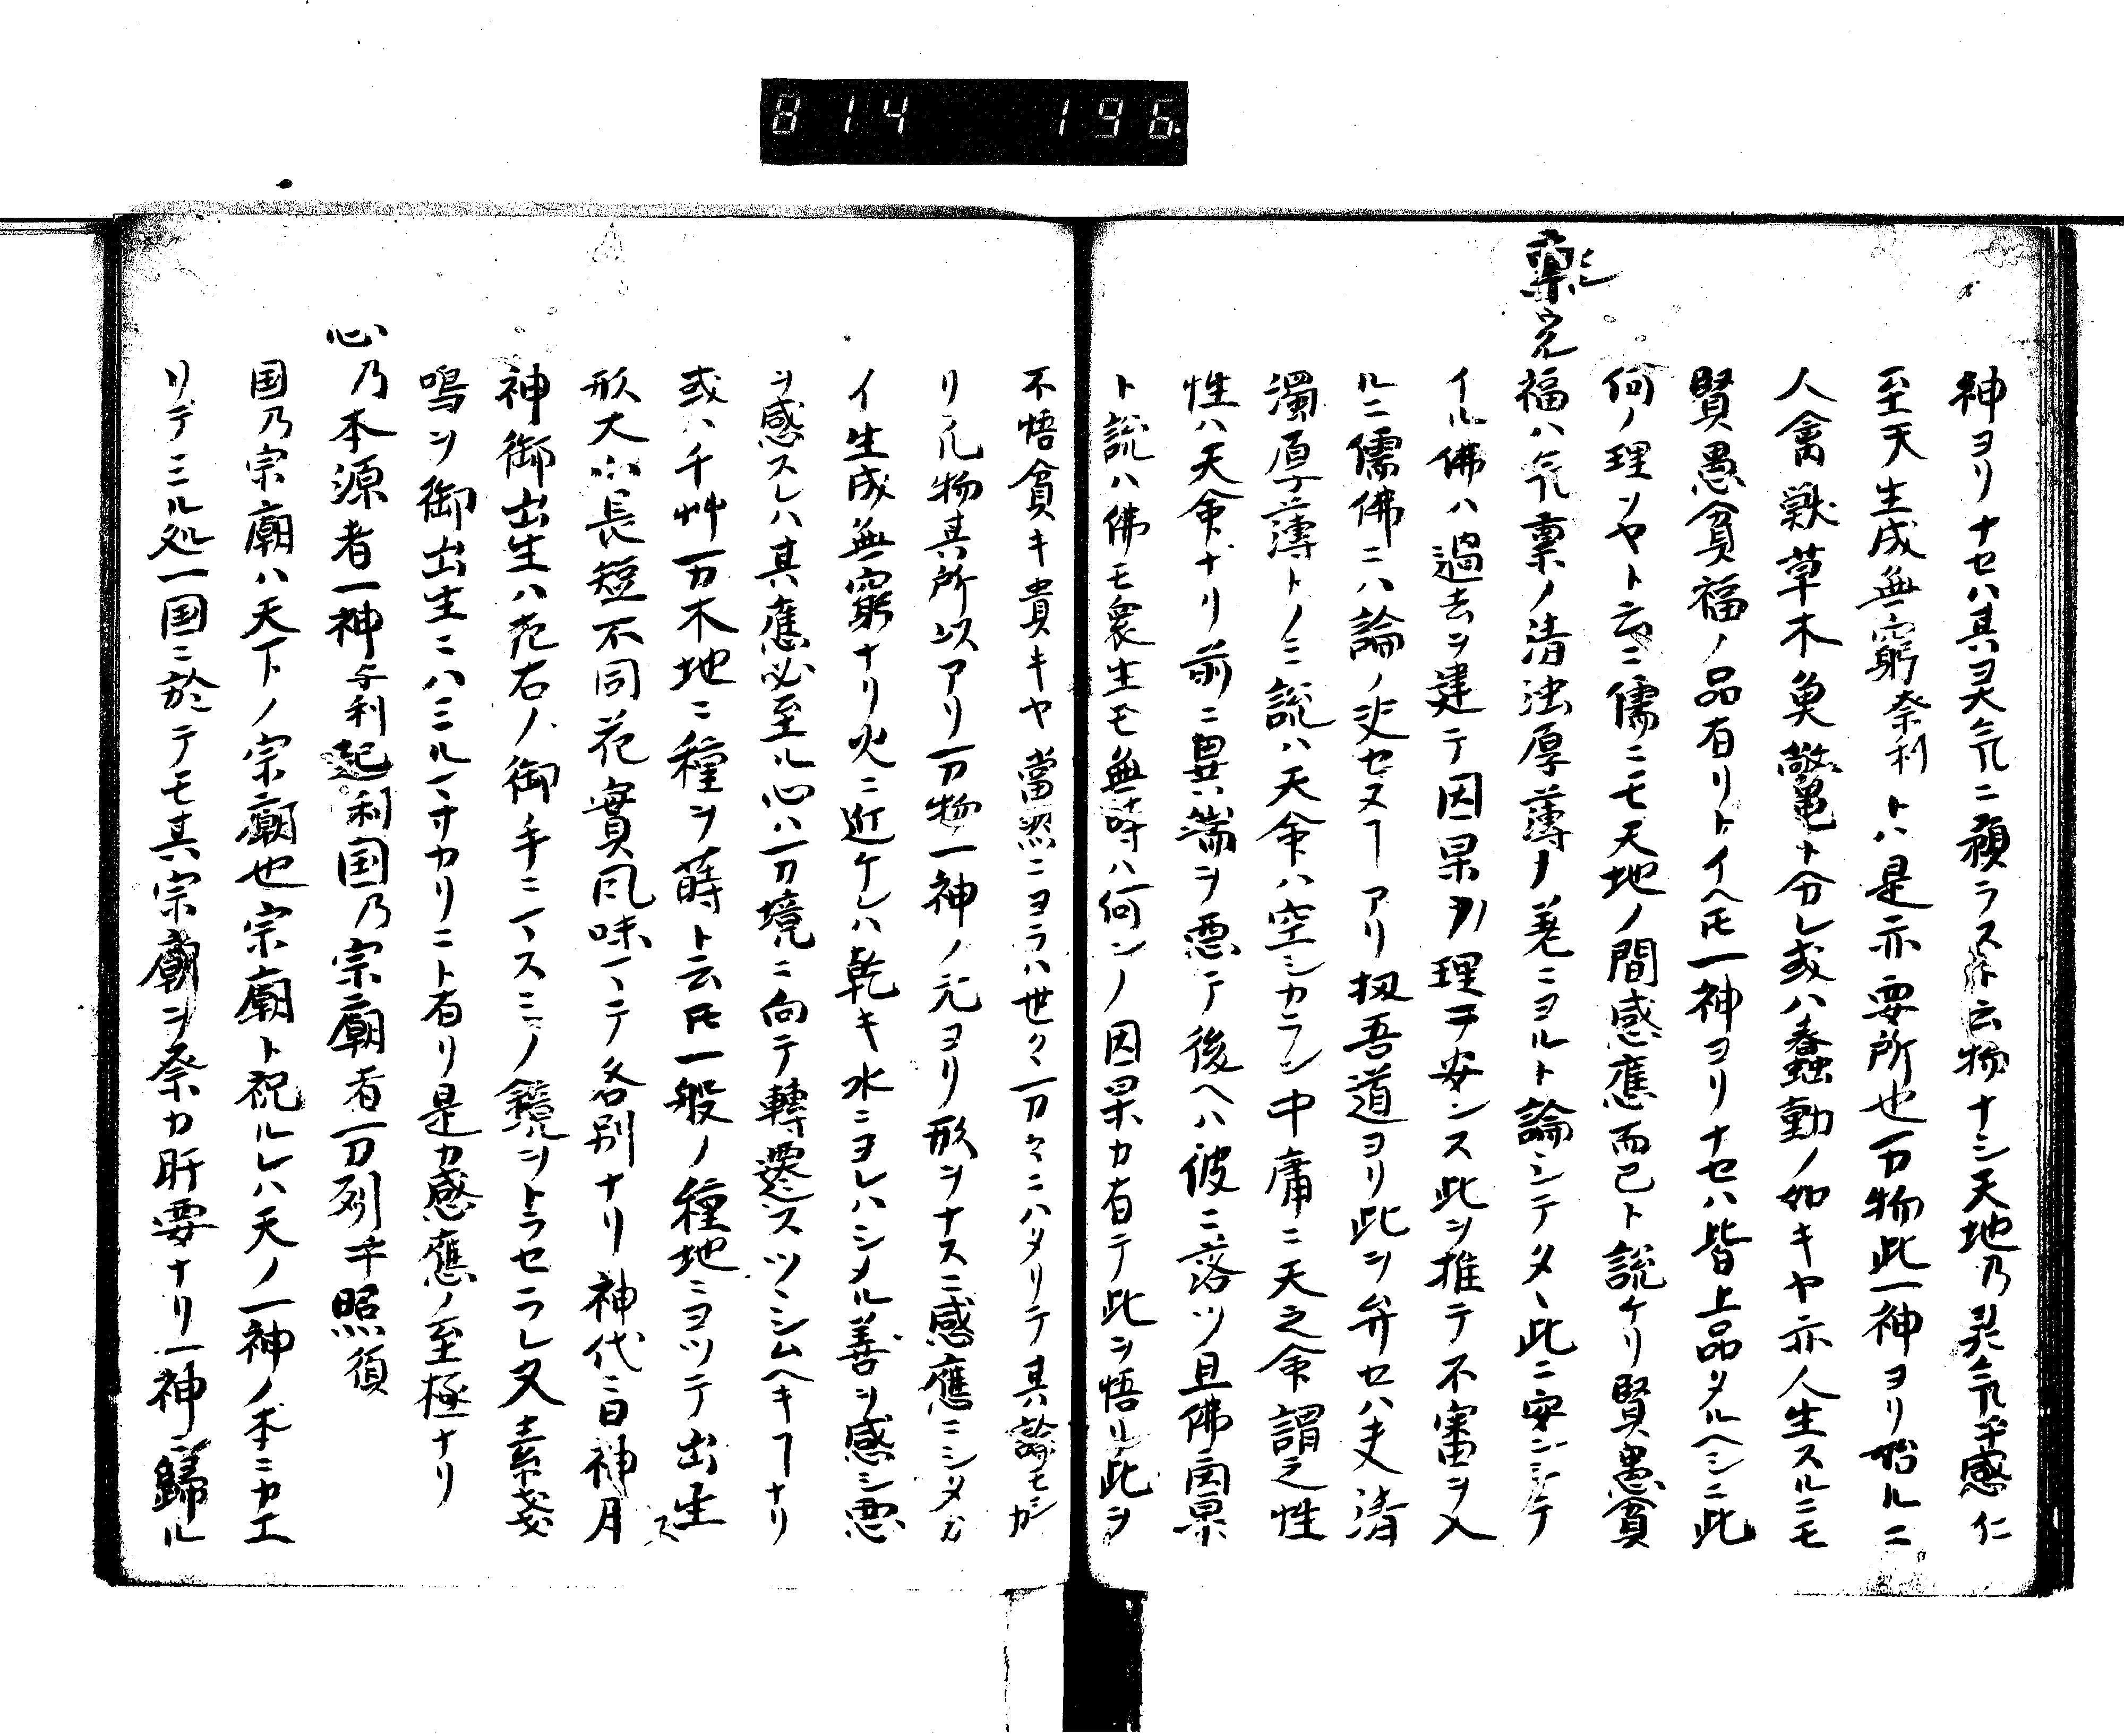 814 196.
神ヨリナセハ其灵気ニ預ラスト云物ナシ天地乃灵気乎感仁
至天生成無窮奈利トハ是亦要所也万物此一神ヨリ始ルニ
人禽獣草木魚鼈ト分レ或ハ蠢動ノ如キヤ亦人生スルニモ
賢愚貧福ノ品有リトイヘ𪜈一神ヨリナセハ皆上品タルヘシニ此
何ノ理ソヤト云ニ儒ニモ天地ノ間感應而已ト説ケリ賢愚貧
福ハ気稟ノ清濁厚薄ノ差ニヨルト論シテタヽ此ニ安ンシテ
イル佛ハ過去ヲ建テ因果ノ理ヲ安ンス此ヲ推テ不審ヲ入
ルニ儒佛ニハ論ノ及セヌヿアリ扨吾道ヨリ此ヲ弁セハ夫清
濁厚薄トノミ説ハ天命ハ空シカラン中庸ニ天之命謂之性
性ハ天命ナリ前ニ異端ヲ悪テ後ヘハ彼ニ落ツ且佛因果
ト説ハ佛モ衆生モ無時ハ何ンノ因果カ有テ此ヲ悟リ此ヲ
不悟貧キ貴キヤ當然ニヨラハ世々万々ニハタリテ其論モシカ
リ凡物其所以アリ万物一神ノ元ヨリ形ヲナスニ感應ニシタカ
イ生成無窮ナリ火ニ近ケレハ乾キ水ニヨレハシメル善ヲ感シ悪
ヲ感スレハ其應必至ル心ハ万境ニ向テ轉遷スツヽシムヘキヿナリ
或ハ千艸万木地ニ種ヲ蒔ト云𪜈一般ノ種地ニヨツテ出生ス
形大小長短不同花實風味マテ各別ナリ神代ニ日神月
神御出生ハ左右ノ御手ニマスミノ鏡ヲトラセラレ又素戔
嗚ヲ御出生ニハミルマナカリニト有リ是カ感應ノ至極ナリ
心乃本源者一神与利起利国乃宗廟者万列乎照須
国乃宗廟ハ天下ノ宗廟也宗廟ト祝ルレハ天ノ一神ノ本ニカエ
リテミル処一国ニ於テモ其宗廟ヲ祭カ肝要ナリ一神ニ歸ル